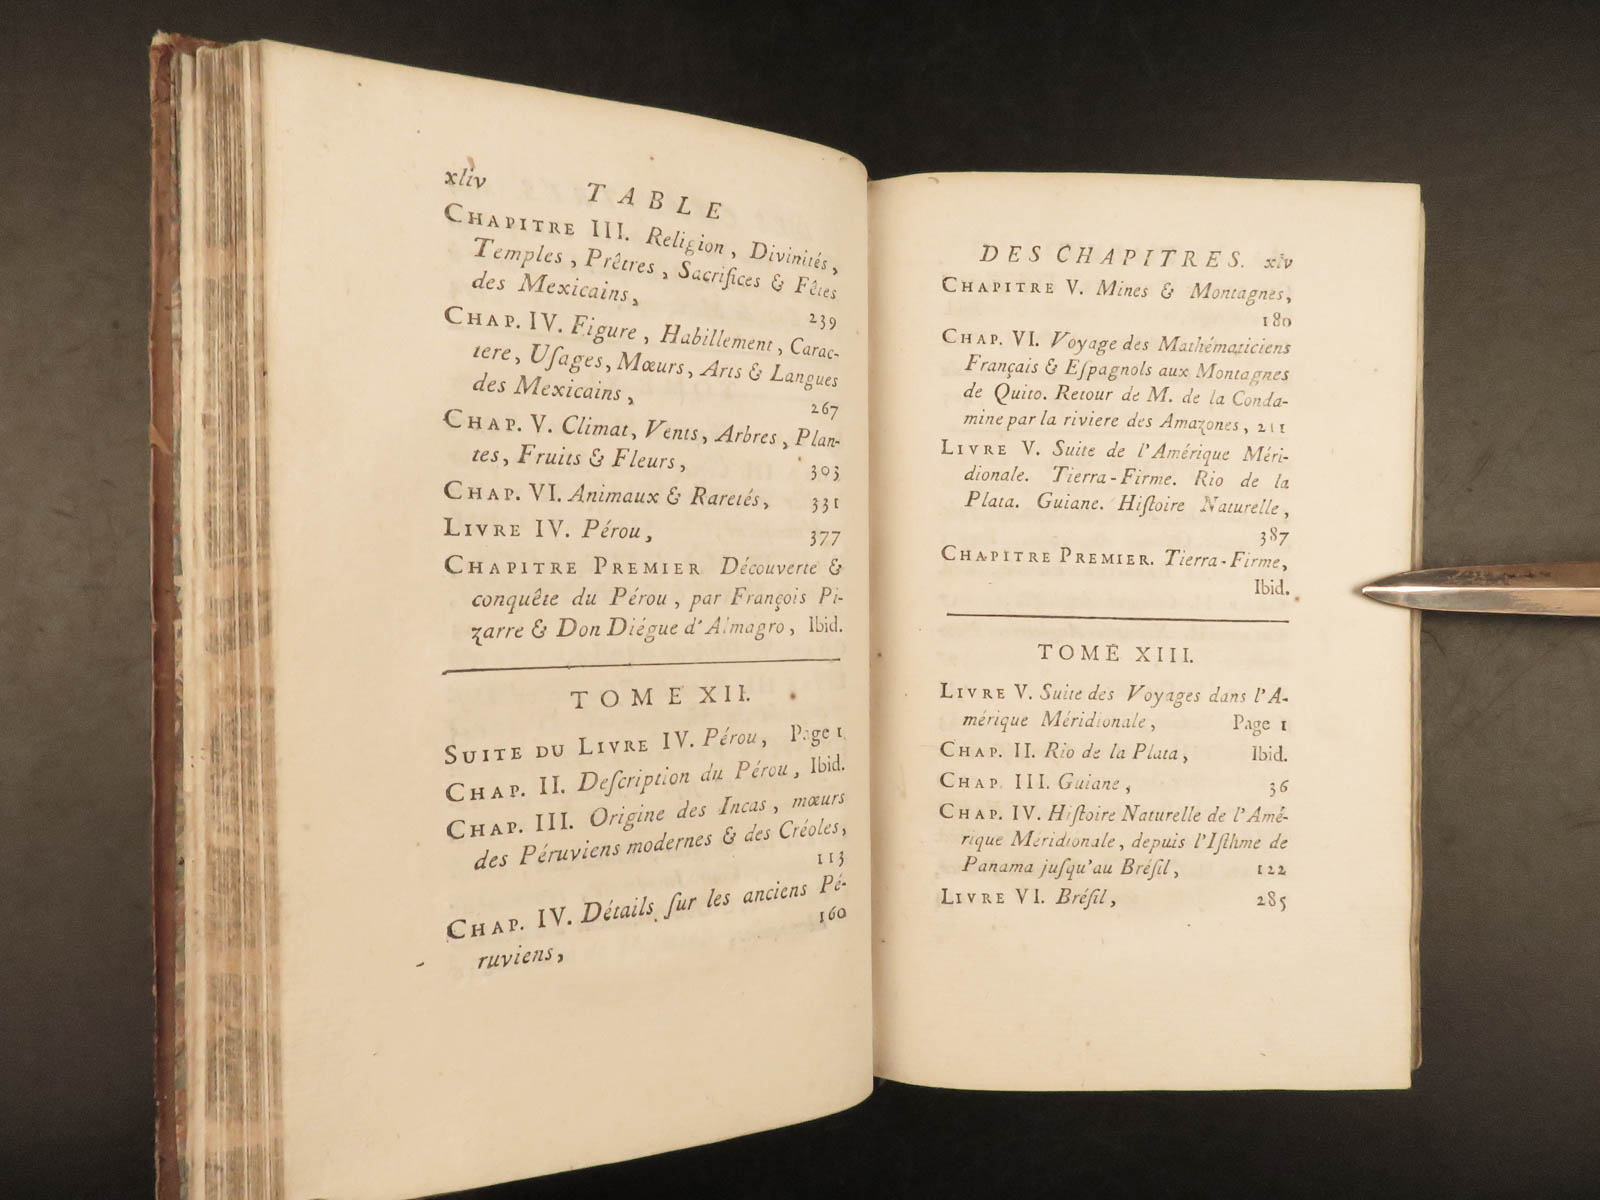 xliv TABLE
CHAPITRE III. Religion, Divinités,
Temples, Prêtres, Sacrifices & Fêtes
des Mexicains, 239
CHAP. IV. Figure, Habillement, Carac-
tere, Uſages, Mœurs, Arts & Langues
des Mexicains, 267
CHAP. V. Climat, Vents, Arbres, Plan-
tes, Fruits & Fleurs, 303
CHAP. VI. Animaux & Raretés, 331
LIVRE IV. Pérou, 377
CHAPITRE PREMIER Découverte &
conquête du Pérou, par François Pi-
zarre & Don Diégue d'Almagro, Ibid.
TOME XII.
SUITE DU LIVRE IV. Pérou, Page 1
CHAP. II. Deſcription du Pérou, Ibid.
CHAP. III. Origine des Incas, mœurs
des Péruviens modernes & des Créoles,
113
CHAP. IV. Détails ſur les anciens Pé-
ruviens, 160
DES CHAPITRES. xlv
CHAPITRE V. Mines & Montagnes,
180
CHAP. VI. Voyage des Mathématiciens
Français & Eſpagnols aux Montagnes
de Quito. Retour de M. de la Conda-
mine par la riviere des Amazones, 211
LIVRE V. Suite de l'Amérique Méri-
dionale. Tierra-Firme. Rio de la
Plata. Guiane. Hiſtoire Naturelle,
387
CHAPITRE PREMIER. Tierra-Firme,
Ibid.
TOME XIII.
LIVRE V. Suite des Voyages dans l'A-
mérique Méridionale, Page 1
CHAP. II. Rio de la Plata, Ibid.
CHAP. III. Guiane, 36
CHAP. IV. Hiſtoire Naturelle de l'Amé-
rique Méridionale, depuis l'Iſthme de
Panama juſqu'au Bréſil, 122
LIVRE VI. Bréſil, 285